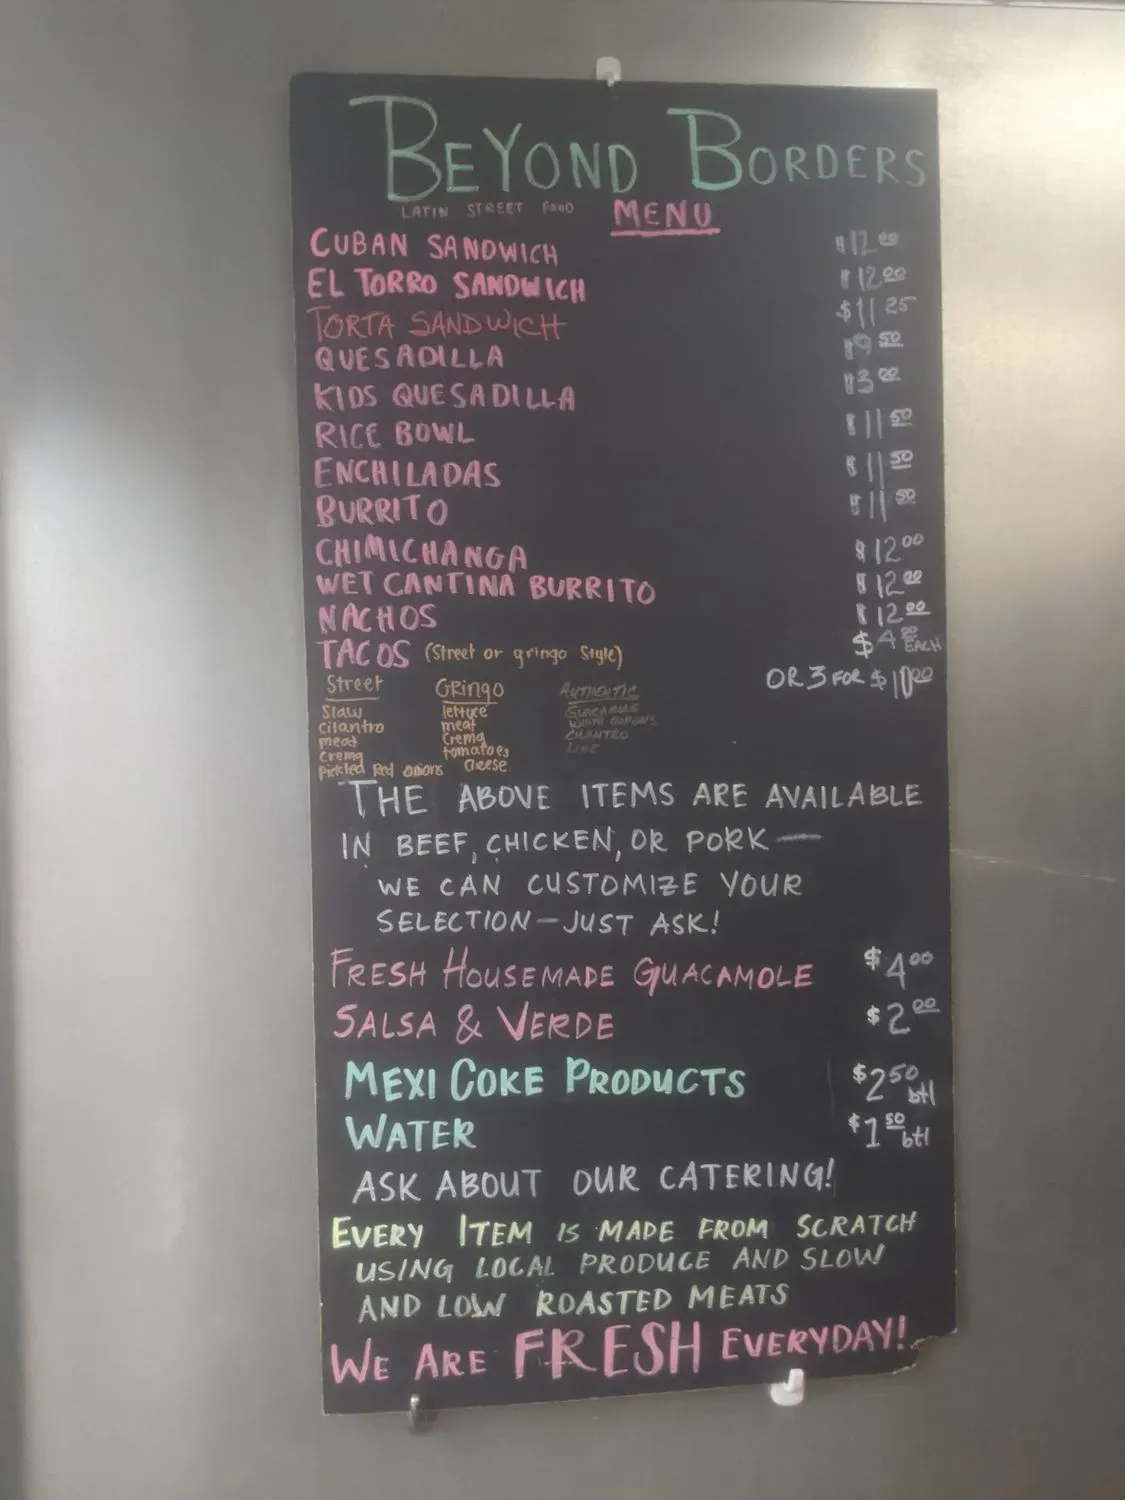 BEYOND BORDERS
LATIN STREET FOOD MENU
CUBAN SANDWICH $12.00
EL TORRO SANDWICH $12.00
TORTA SANDWICH $11.25
QUESADILLA $9.50
KIDS QUESADILLA $3.00
RICE BOWL $11.50
ENCHILADAS $11.50
BURRITO $11.50
CHIMICHANGA $12.00
WET CANTINA BURRITO $12.00
NACHOS $12.00
TACOS (Street or gringo Style) $4.00 EACH
OR 3 FOR $10.00
Street GRingo AUTHENTIC
Slaw lettuce GUACAMOLE
cilantro meat WITH ONIONS
meat Crema CILANTRO
Crema tomatoes LIME
Pickled Red onions cheese
THE ABOVE ITEMS ARE AVAILABLE
IN BEEF, CHICKEN, OR PORK —
WE CAN CUSTOMIZE YOUR
SELECTION — JUST ASK!
FRESH HOUSEMADE GUACAMOLE $4.00
SALSA & VERDE $2.00
MEXI COKE PRODUCTS $2.50 btl
WATER $1.50 btl
ASK ABOUT OUR CATERING!
EVERY ITEM IS MADE FROM SCRATCH
USING LOCAL PRODUCE AND SLOW
AND LOW ROASTED MEATS
WE ARE FRESH EVERYDAY!